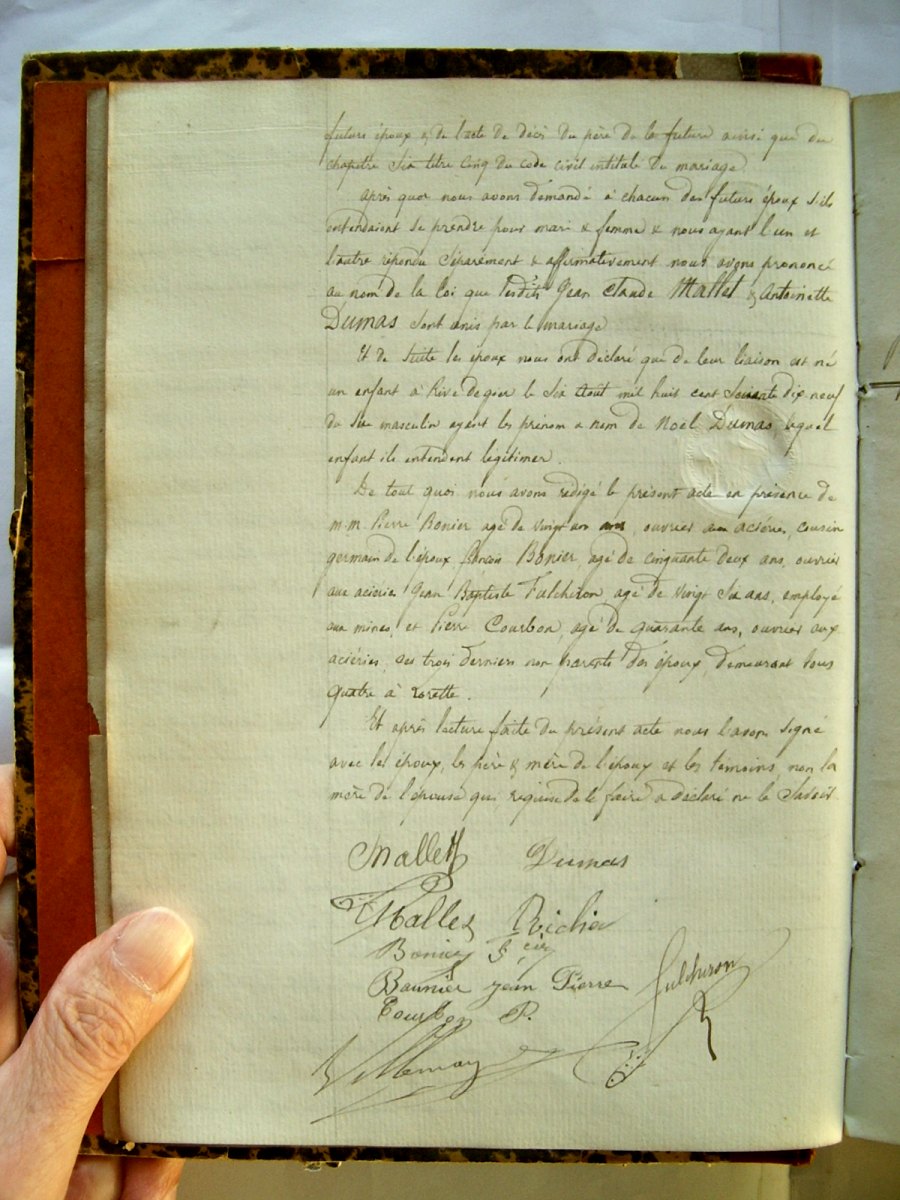 futurs époux & de l'acte de décès du père de la future ainsi que du
chapitre six titre cinq du code civil intitulé du mariage
après quoi nous avons demandé à chacun des futurs époux s'ils
entendaient se prendre pour mari & femme & nous ayant l'un et
l'autre répondu séparément & affirmativement nous avons prononcé
au nom de la loi que lesdits Jean Claude Mallet & Antoinette
Dumas sont unis par le mariage
Et de suite les époux nous ont déclaré que de leur liaison est né
un enfant à Rive de gier le six Aout mil huit cent soixante dix neuf
du sexe masculin ayant les prénom & nom de Noël Dumas lequel
enfant ils entendent légitimer.
De tout quoi nous avons rédigé le présent acte en présence de
m.m. Pierre Bonier agé de vingt un ans, ouvrier aux aciéries, cousin
germain de l'époux, françois Bonier, agé de cinquante deux ans, ouvrier
aux aciéries Jean Baptiste Fulchiron agé de vingt six ans, employé
aux mines, et Pierre Courbon agé de quarante ans, ouvrier aux
aciéries, ses trois derniers non parents des époux, demeurant tous
quatre à Lorette.
Et après lecture faite du présent acte nous l'avons signé
avec les époux, les père & mère de l'époux et les témoins, non la
mère de l'épouse qui, requise de le faire a déclaré ne le savoir
Mallet Dumas
Mallet
Bonier
Baunier jean Pierre Fulchiron
Courbon P.